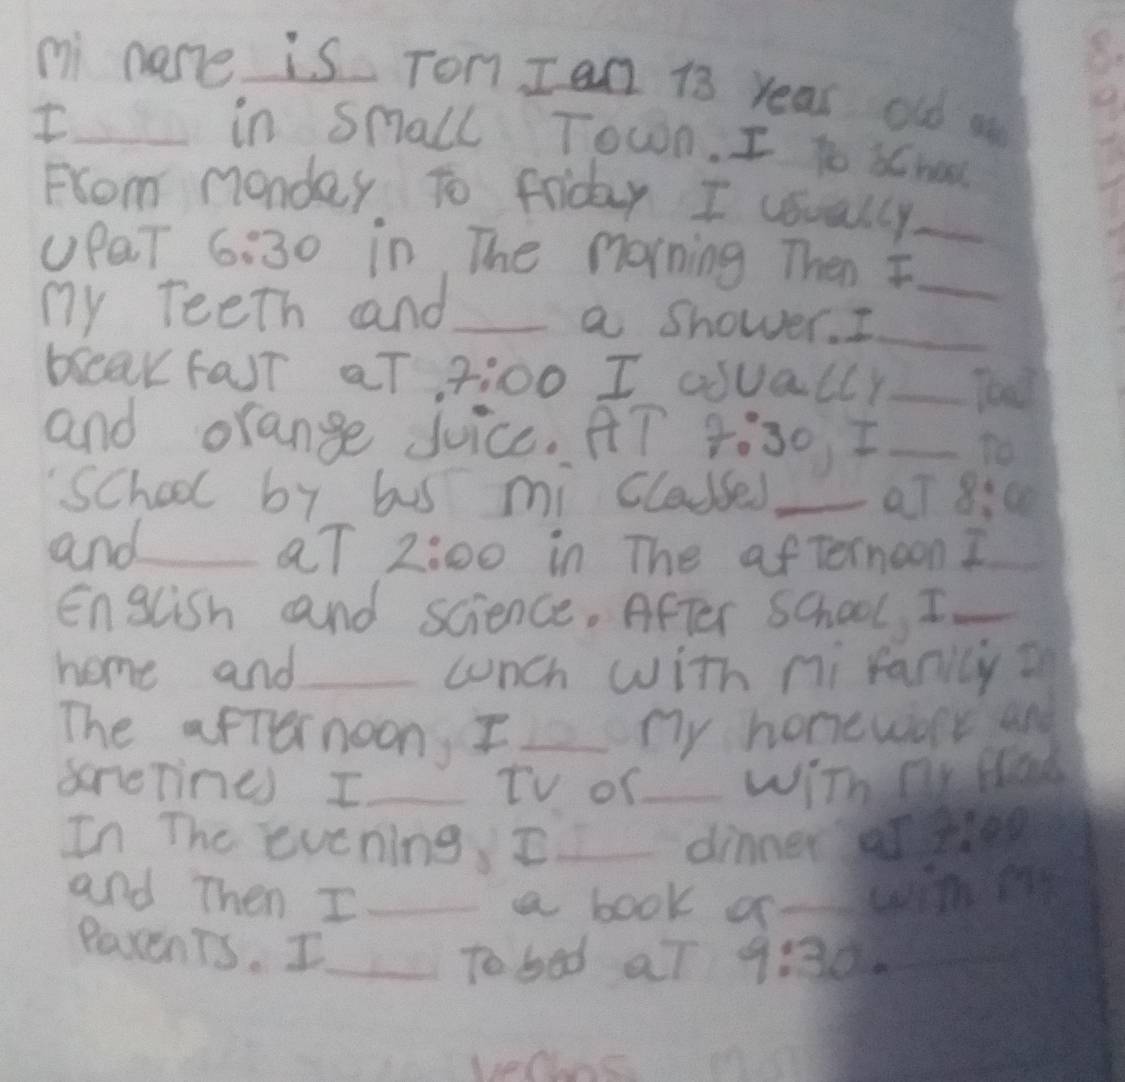 mi name is Tom I am 13 year old
I ___ in small Town. I To school
From Monday To friday I usually ___
UPaT 6:30 in The Morning Then I ___
my Teeth and ___ a shower. I ___
breakfasT aT 7:00 I usually ___
and orange juice. AT 7:30, I ___ To
school by bus mi classes ___ aT 8:00
and ___ aT 2:00 in The afTernoon I ___
English and science. AfTer school, I ___
home and ___ lunch wiTh mi family In
The afTernoon, I ___ My homework and
someTimes I ___ TV or ___ wiTh my
In The evening, I ___ dinner aT 7:00
and Then I ___ a book or ___ wiTh my
ParenTs. I ___ To bed aT 9:30.
verbos